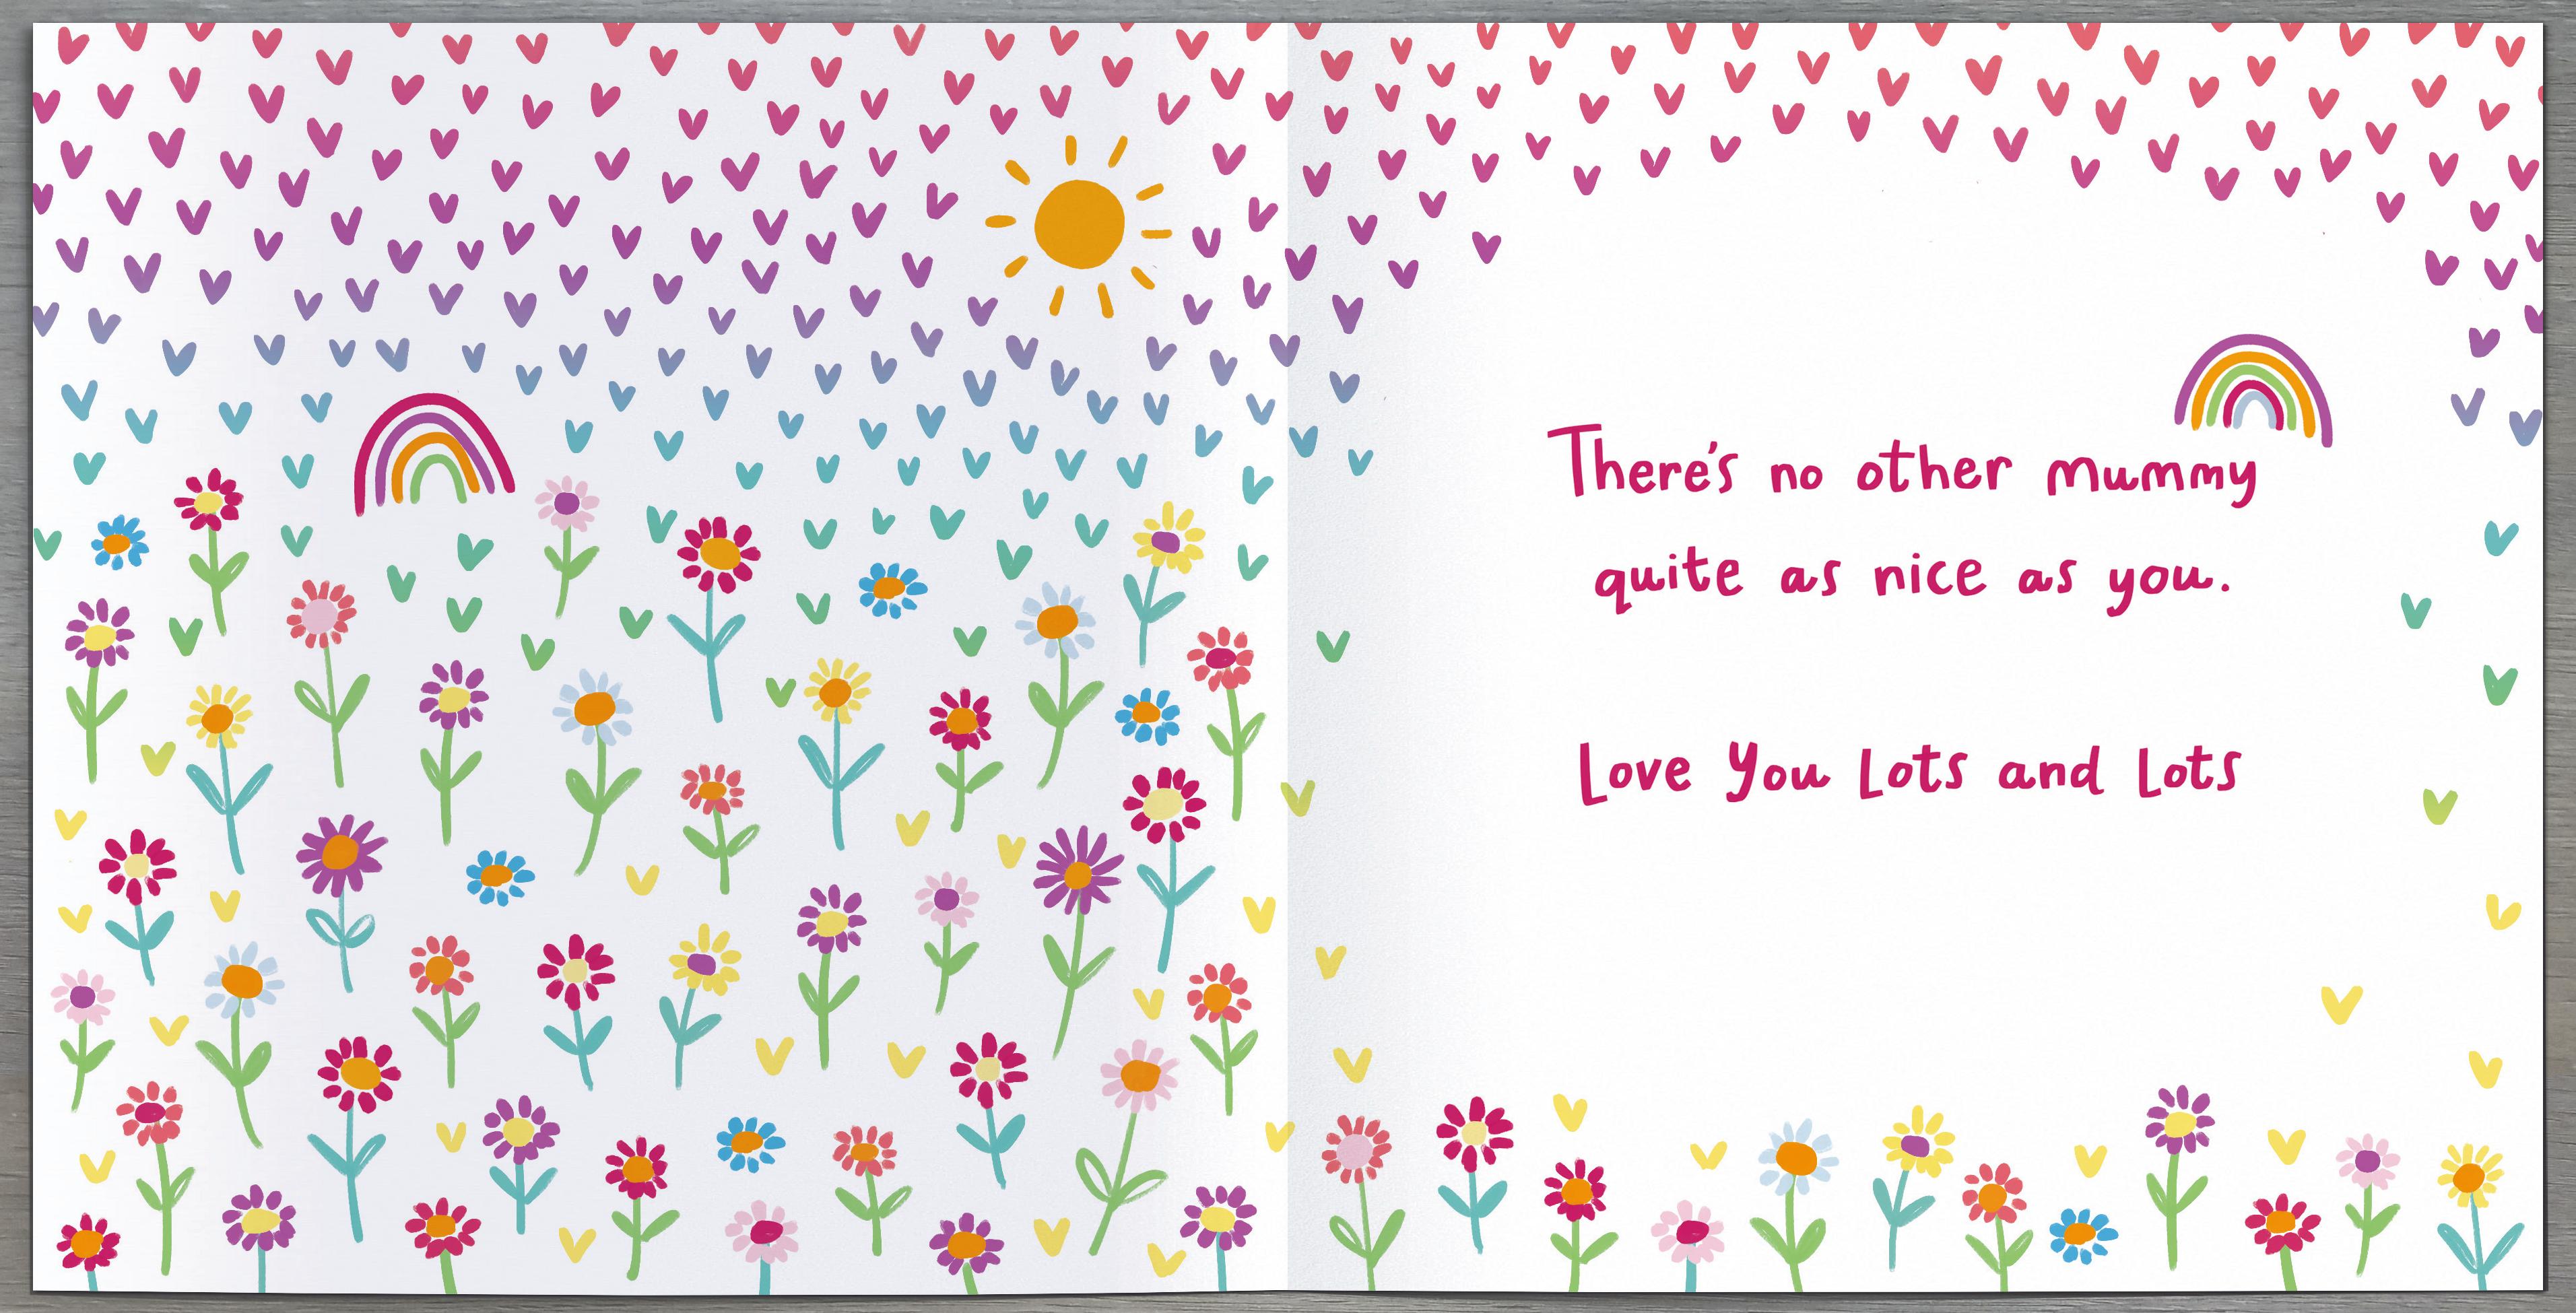 There's no other mummy
quite as nice as you.
Love You Lots and Lots